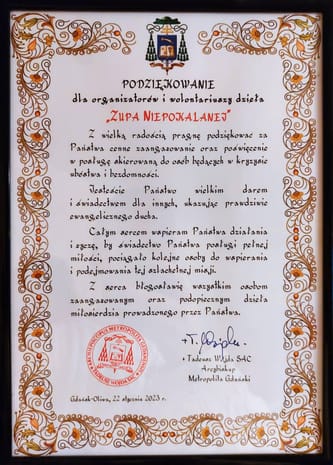 PODZIĘKOWANIE
dla organizatorów i wolontariuszy dzieła
"ZUPA NIEPOKALANEJ"
Z wielką radością pragnę podziękować za
Państwa cenne zaangażowanie oraz poświęcenie
w posługę skierowaną do osób będących w kryzysie
ubóstwa i bezdomności.
Jesteście Państwo wielkim darem
i świadectwem dla innych, ukazując prawdziwie
ewangelicznego ducha.
Całym sercem wspieram Państwa działania
i życzę, by świadectwo Państwa posługi pełnej
miłości, pociągało kolejne osoby do wspierania
i podejmowania tej szlachetnej misji.
Z serca błogosławię wszystkim osobom
zaangażowanym oraz podopiecznym dzieła
miłosierdzia prowadzonego przez Państwa.
+ Tadeusz Wojda SAC
Arcybiskup
Metropolita Gdański
Gdańsk-Oliwa, 22 stycznia 2023 r.